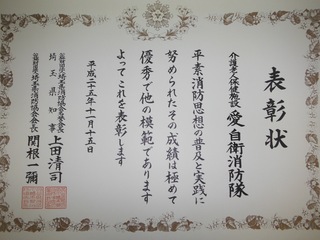 表彰状
介護老人保健施設 愛自衛消防隊
平素消防思想の普及と実践に
努められたその成績は極めて
優秀で他の模範であります
よってこれを表彰します
平成二十五年十一月十五日
埼玉県消防協会名誉会長
埼玉県知事 上田清司
埼玉県消防協会会長 関根一彌